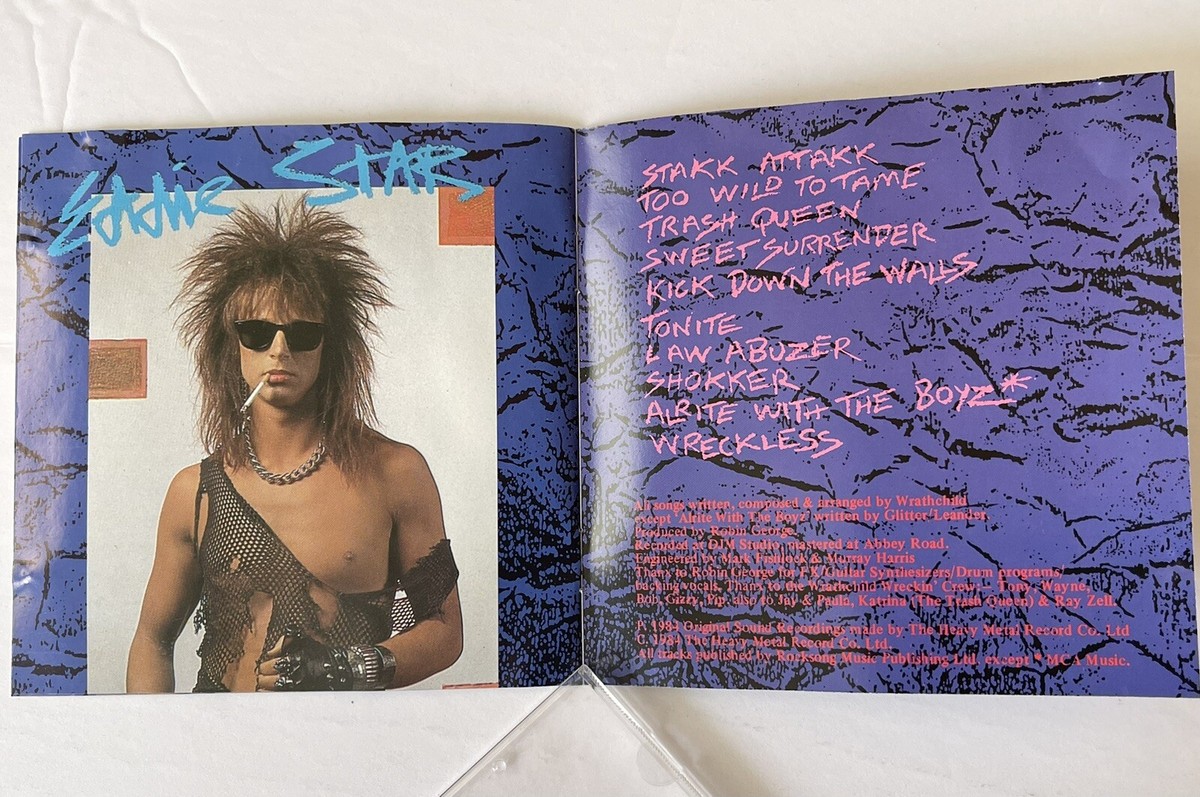 Eddie STAR
STAKK ATTAKK
TOO WILD TO TAME
TRASH QUEEN
SWEET SURRENDER
KICK DOWN THE WALLS
TONITE
LAW ABUZER
SHOKKER
ALRITE WITH THE BOYZ*
WRECKLESS
All songs written, composed & arranged by Wrathchild
except 'Alrite With The Boyz' written by Glitter/Leander.
Produced by Robin George.
Recorded at DJM Studio, mastered at Abbey Road.
Engineered by Mark Fishlock & Murray Harris
Thanx to Robin George for FX/Guitar Synthesizers/Drum programs/
Backing vocals, Thanx to the Wrathchild Wreckin' Crew: Tony, Wayne,
Bob, Gizzy, Pip, also to Jay & Paula, Katrina (The Trash Queen) & Ray Zell.
P. 1984 Original Sound Recordings made by The Heavy Metal Record Co. Ltd
C. 1984 The Heavy Metal Record Co. Ltd.
All tracks published by Rocksong Music Publishing Ltd. except * MCA Music.